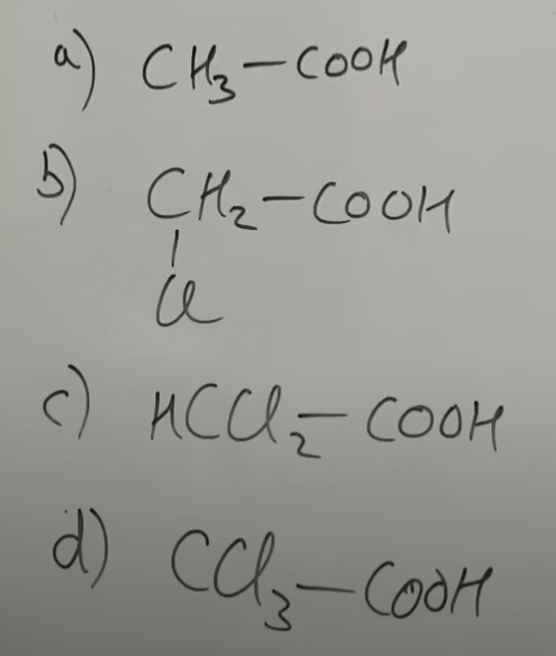 a) CH₃-COOH
b) CH₂-COOH
|
Cl
c) HCCl₂-COOH
d) CCl₃-COOH